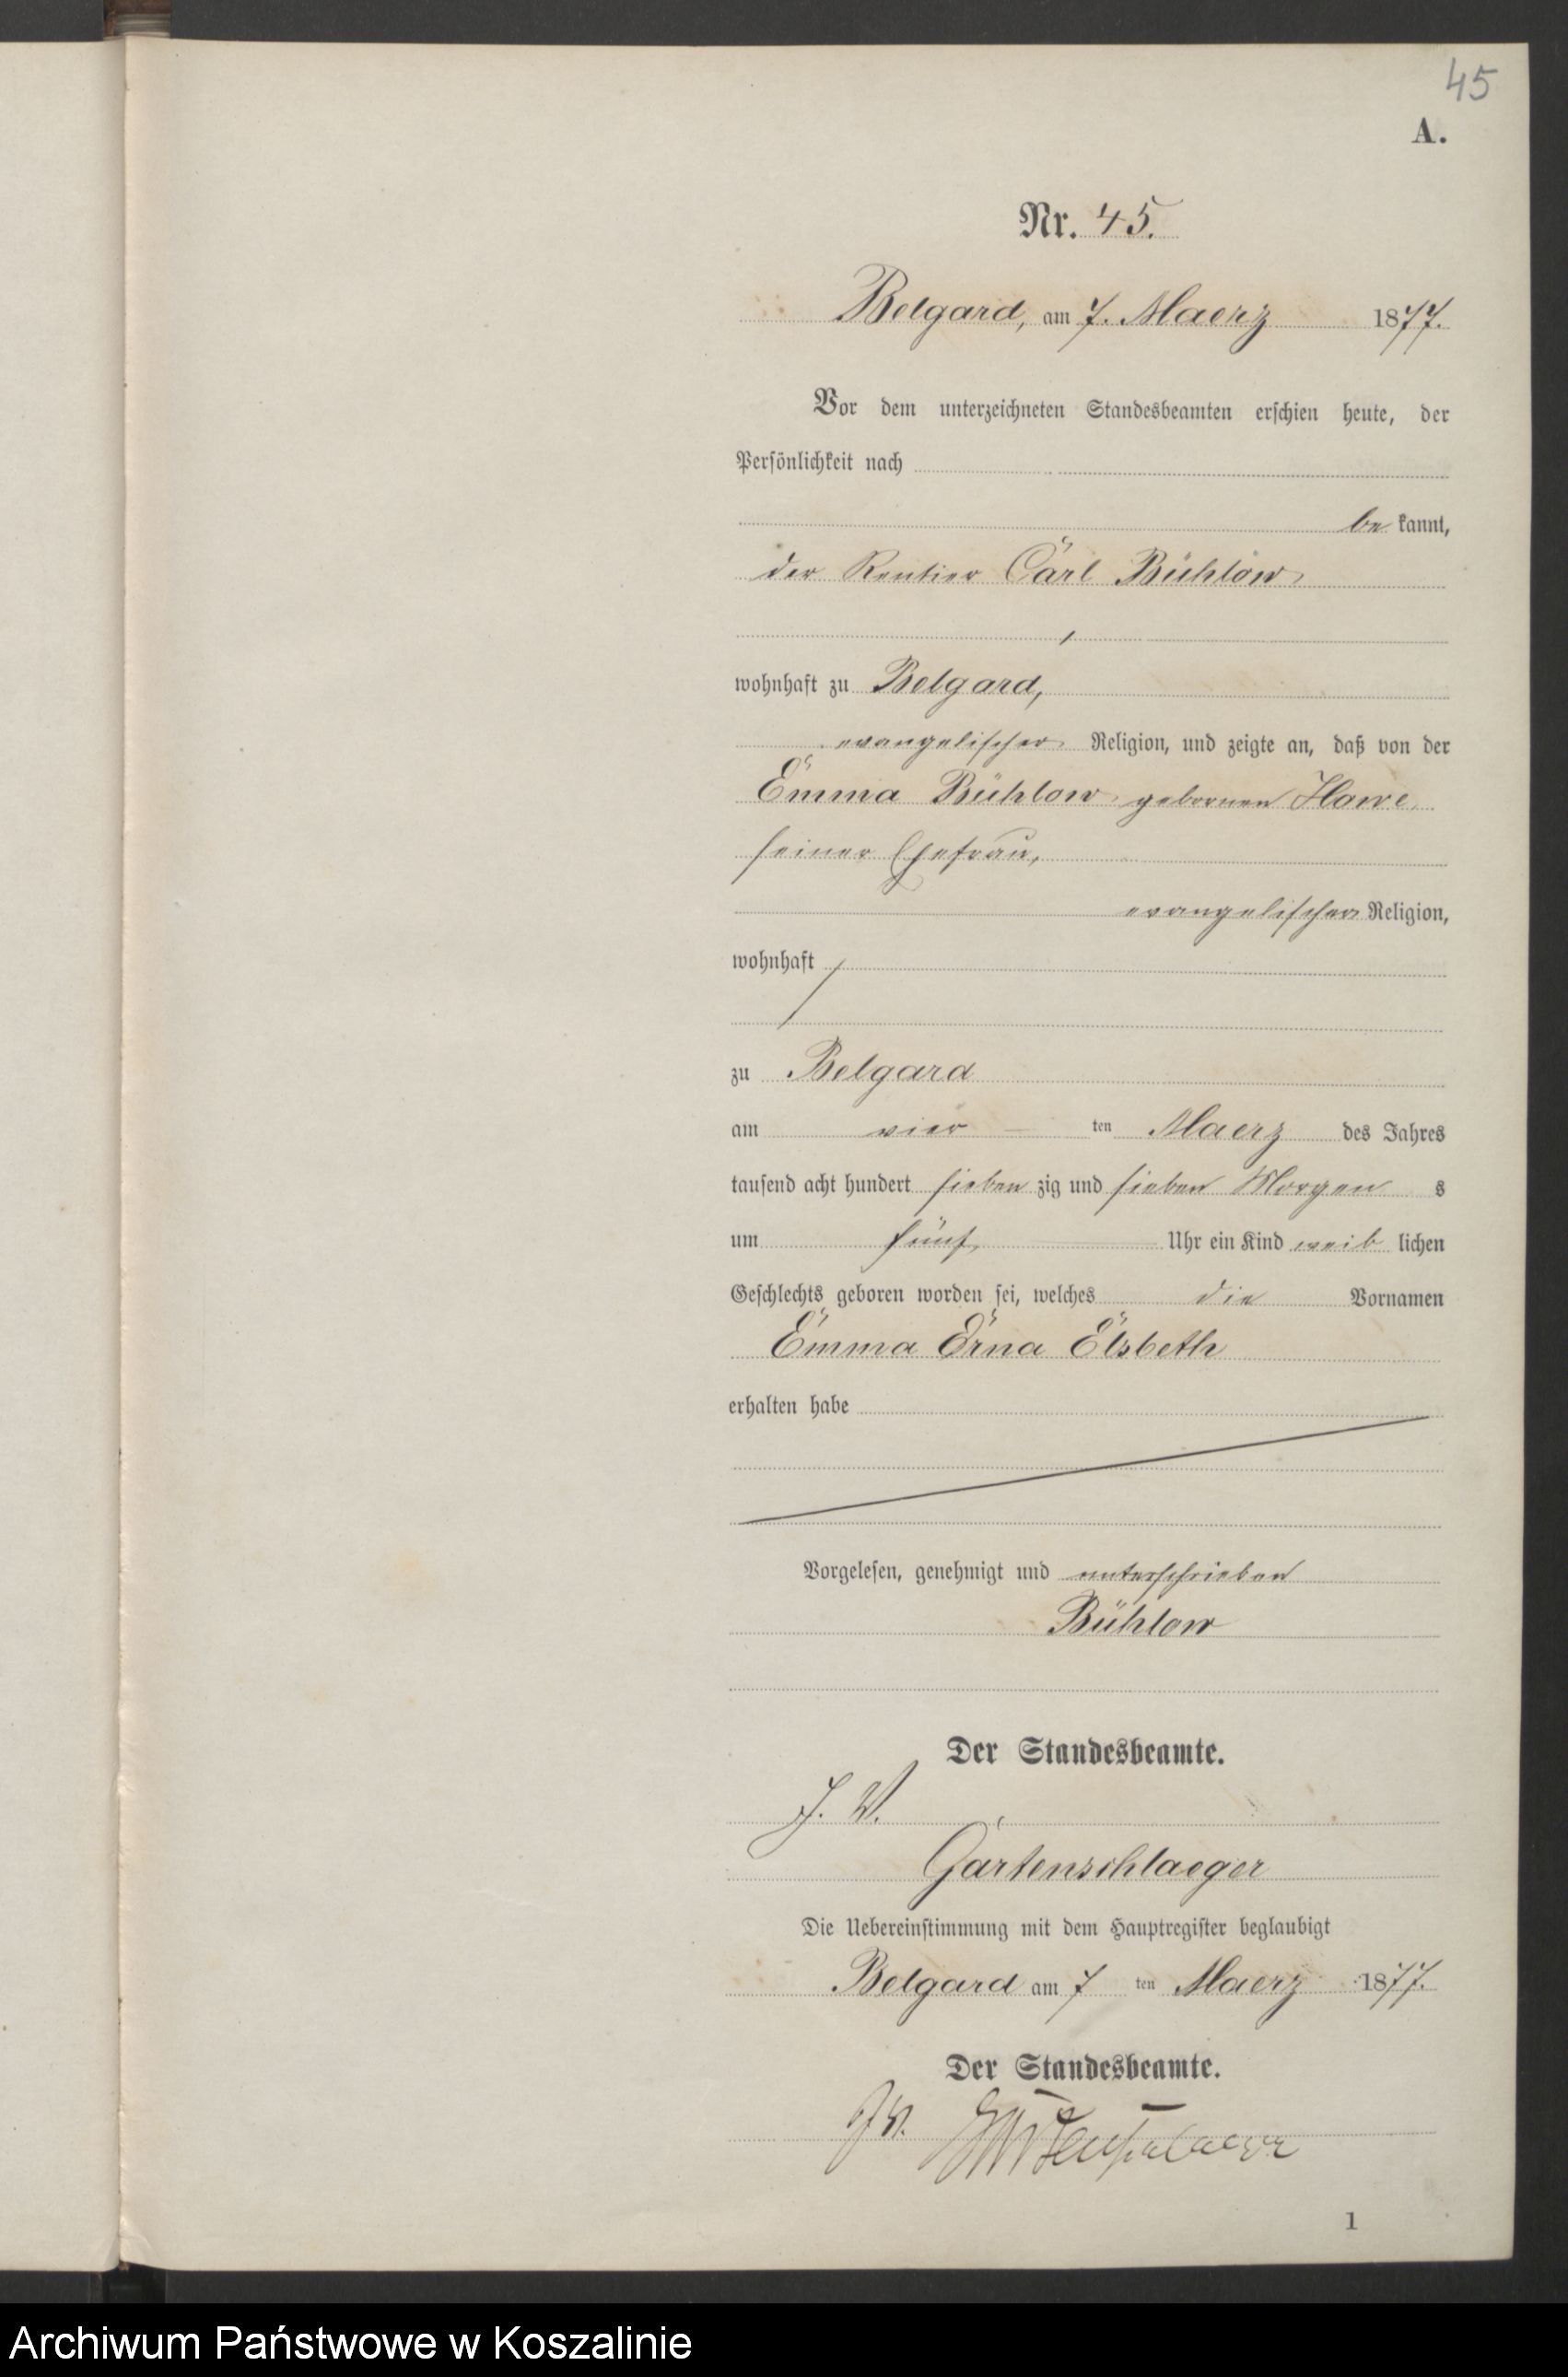 45
A.
Nr. 45.
Belgard, am 7. Maerz 1877.
Vor dem unterzeichneten Standesbeamten erschien heute, der
Persönlichkeit nach
be kannt,
der Rentier Carl Bühlow,
wohnhaft zu Belgard,
evangelischer Religion, und zeigte an, daß von der
Emma Bühlow, gebornen Howe
seiner Ehefrau,
evangelischer Religion,
wohnhaft
zu Belgard
am vier ten Maerz des Jahres
tausend acht hundert sieben zig und sieben Morgen s
um fünf Uhr ein Kind weib lichen
Geschlechts geboren worden sei, welches die Vornamen
Emma Erna Elsbeth
erhalten habe
Vorgelesen, genehmigt und unterschrieben
Bühlow
Der Standesbeamte.
J. V.
Gartenschlaeger
Die Uebereinstimmung mit dem Hauptregister beglaubigt
Belgard am 7 ten Maerz 1877.
Der Standesbeamte.
J. V. Gartenschlaeger
1
Archiwum Państwowe w Koszalinie